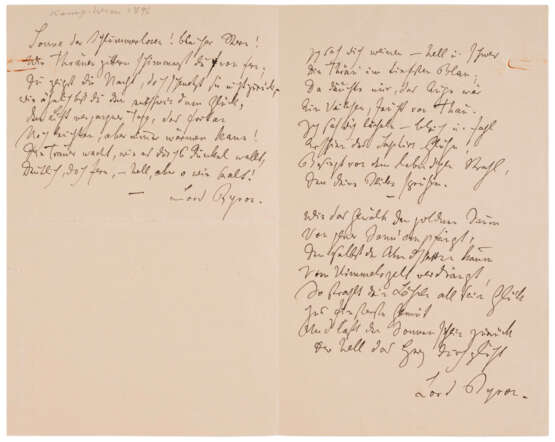 Sonne der Schlummerlosen! bleicher Stern!
Wie Thränen zittern schimmerst du von fern;
Du zeigst die Nacht, doch scheuchst sie nicht zurück,
wie ähnlich bist du dem entschwundnen Glück,
Dem Licht vergangner Tage, das fortan
Nur leuchten, aber nimmer wärmen kann!
Die Trauer wacht, wie es durchs Dunkel wallt,
Deutlich, doch fern, – hell, aber o wie kalt!
– Lord Byron.
Ich sah dich weinen – hell u. schwer
Die Thrän im tiefsten Blau;
Da däuchts mir, das Auge wär
Ein Veilchen, feucht von Thau.
Ich sah dich lächeln – bleich u. fahl
Erschien des Saphirs Glühn!
Besiegt vor dem lebend'gen Strahl,
Den deine Blicke sprühen.
Wie das Gewölk den goldnen Saum
Von ferner Sonn' empfängt,
Den selbst der Abendschatten kaum
Vom Himmelszelt verdrängt,
So strahlt dein Lächeln all sein Glück
Ins düsterste Gemüt
Und läßt den Sonnenschein zurück
Der hell das Herz durchglüht
Lord Byron.